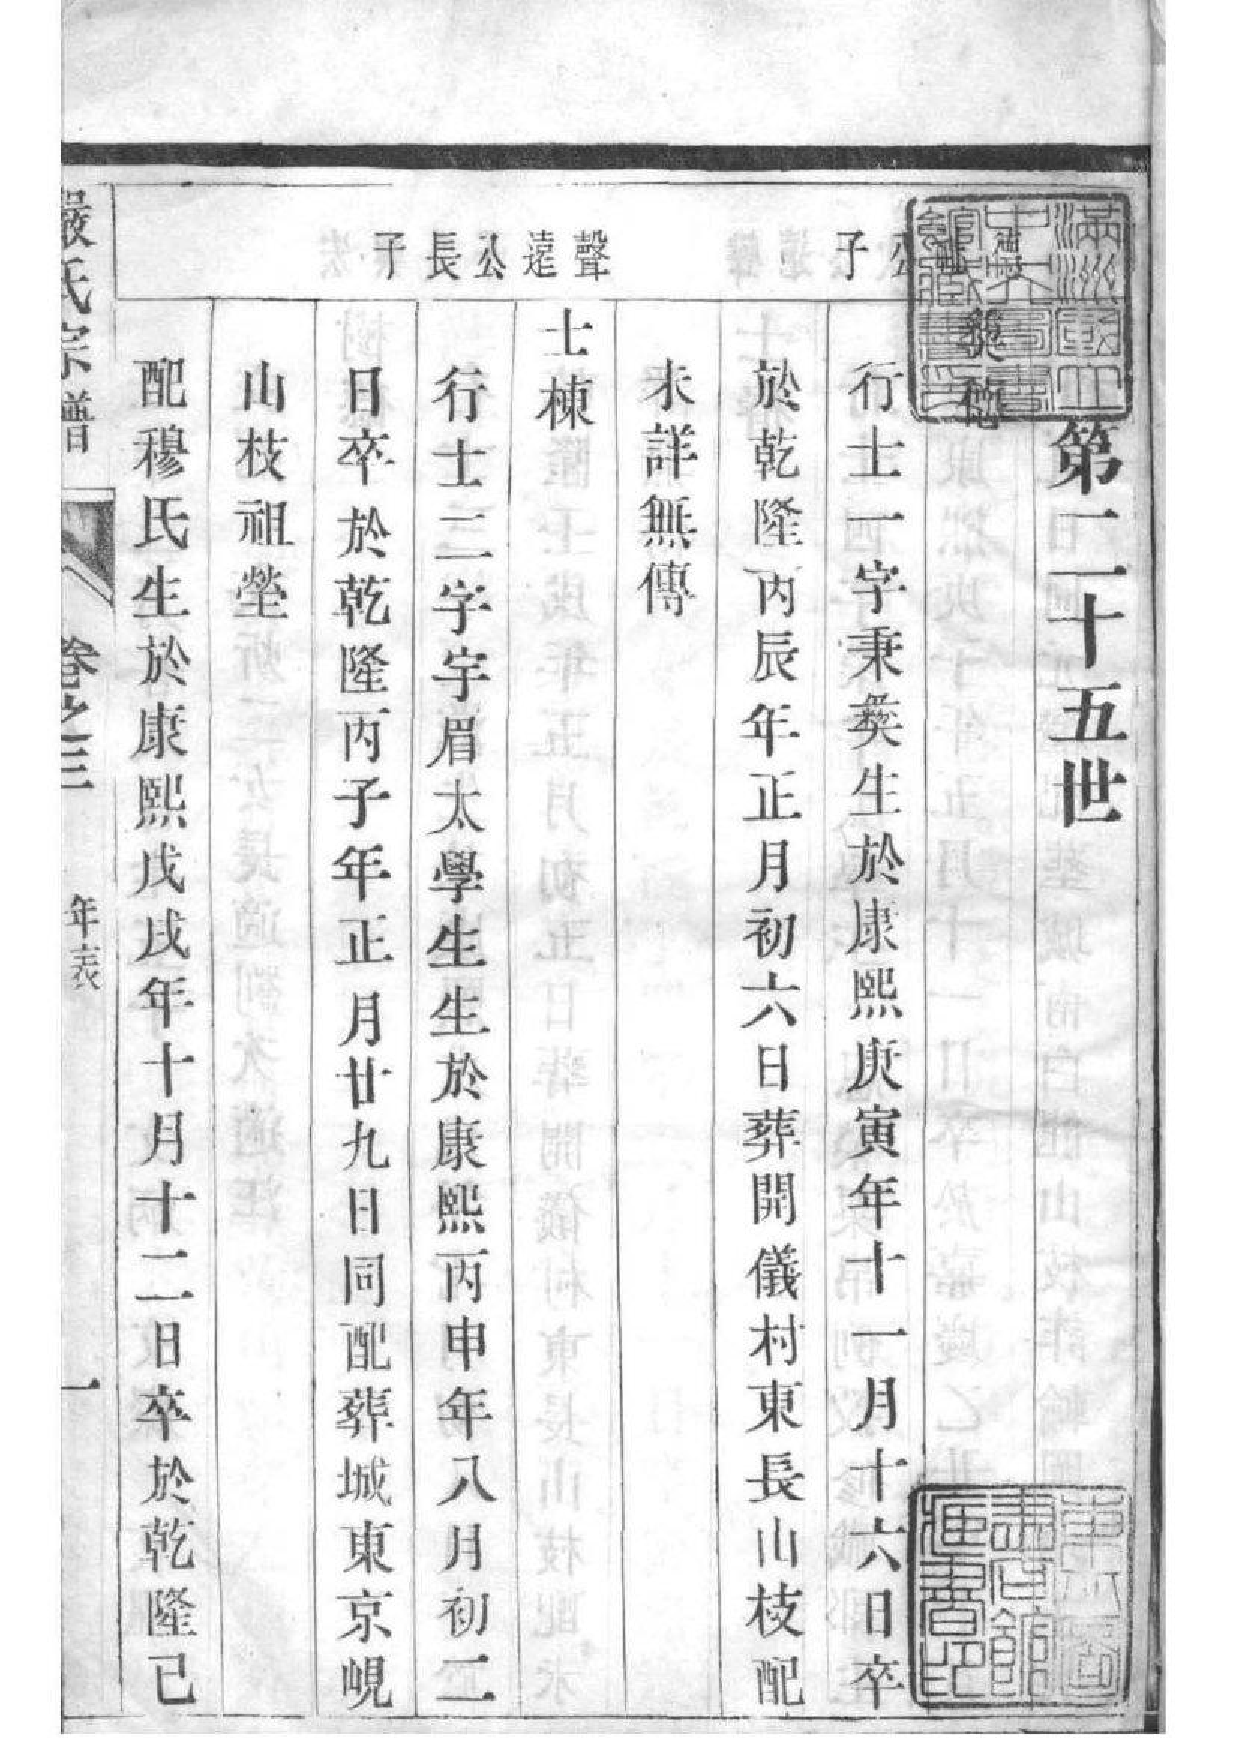 第二十五世
公子
行士一字秉彝生於康熙庚寅年十一月十六日卒
於乾隆丙辰年正月初六日葬開儀村東長山枝配
未詳無傳
聲遠公長子
士棟
行士二字宇眉太學生生於康熙丙申年八月初二
日卒於乾隆丙子年正月廿九日同配葬城東京峴
山枝祖塋
配穆氏生於康熙戊戌年十月十二日卒於乾隆己
嚴氏宗譜
卷之三
年表
一